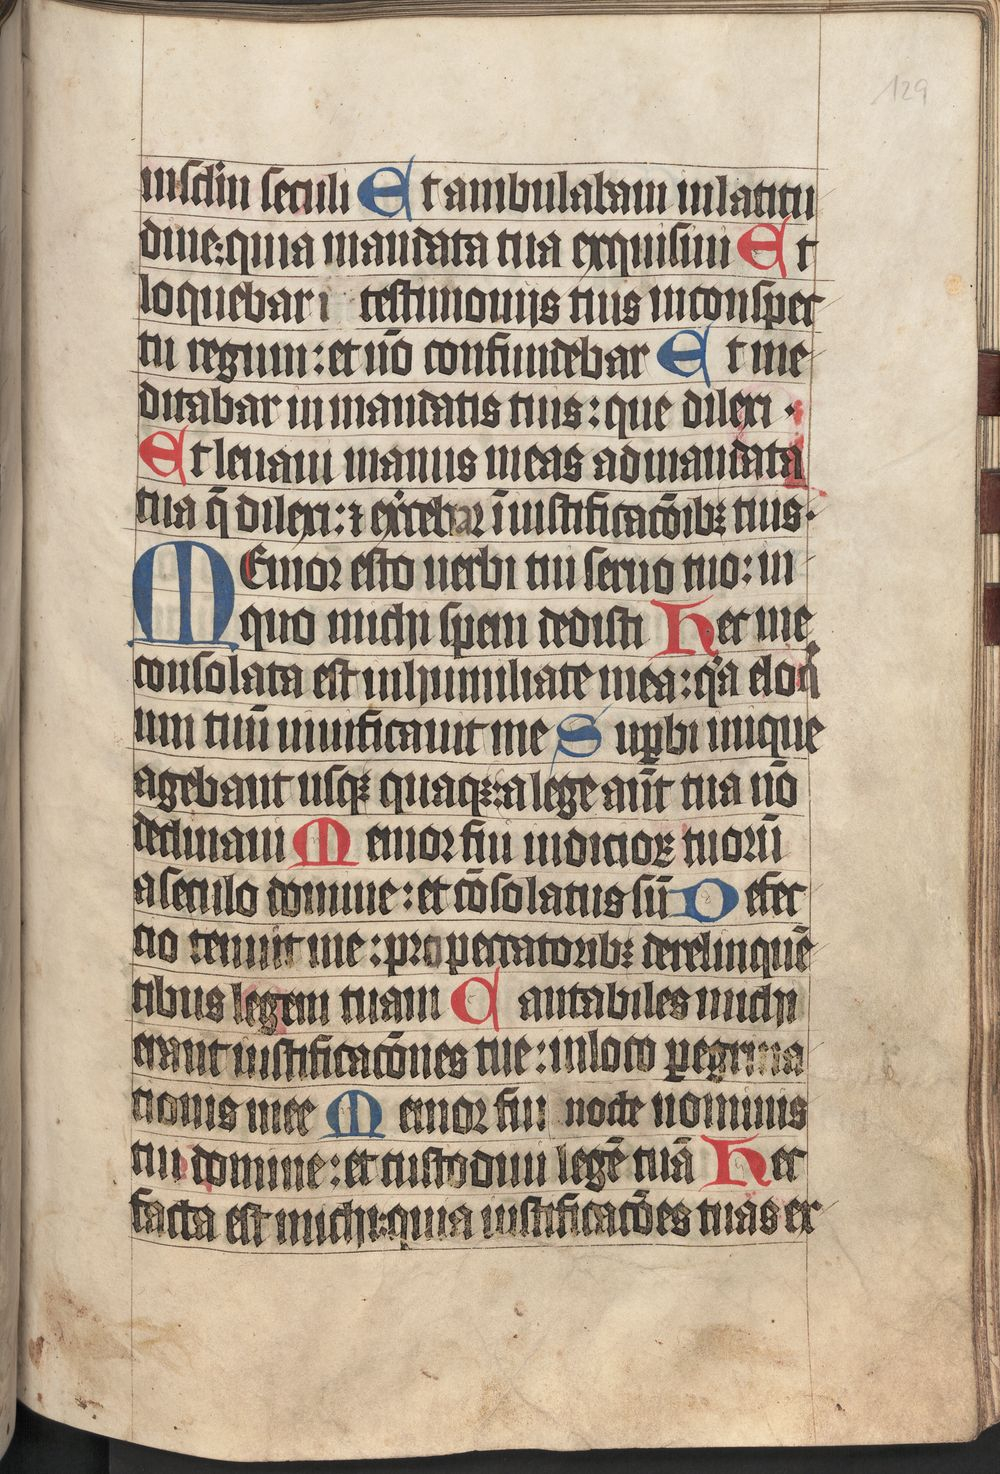 129
insclm seculi Et ambulabam inlatitu
dine: quia mandata tua exquisiui Et
loquebar i testimoniis tuis inconspec
tu regum: et nō confundebar Et me
ditabar in mandatis tuis: que dilexi ·
Et leuaui manus meas admandata
tua q̄ dilexi: ⁊ exˀcebar ī iustificacōibꝫ tuis·
MEmor esto uerbi tui seruo tuo: in
quo michi spem dedisti Hec me
consolata est inhumiliate mea: qˀa eloq̄
ium tuū uiuificauit me Suꝑbi inique
agebant usqꝫ quaqꝫ: a lege aūt tua nō
declinaui Memor fui iudicioꝝ tuorū
aseculo domine: et cōsolatus sū Defec
tio tenuit me: pro peccatoribꝫ derelinquē
tibus legem tuam Cantabiles michi
erant iustificacōnes tue: inloco ꝑegrina
tionis mee Memor fui nocte nominis
tui domine: et custodiui legē tuā Hec
facta est michi: quia iustificacōes tuas ex